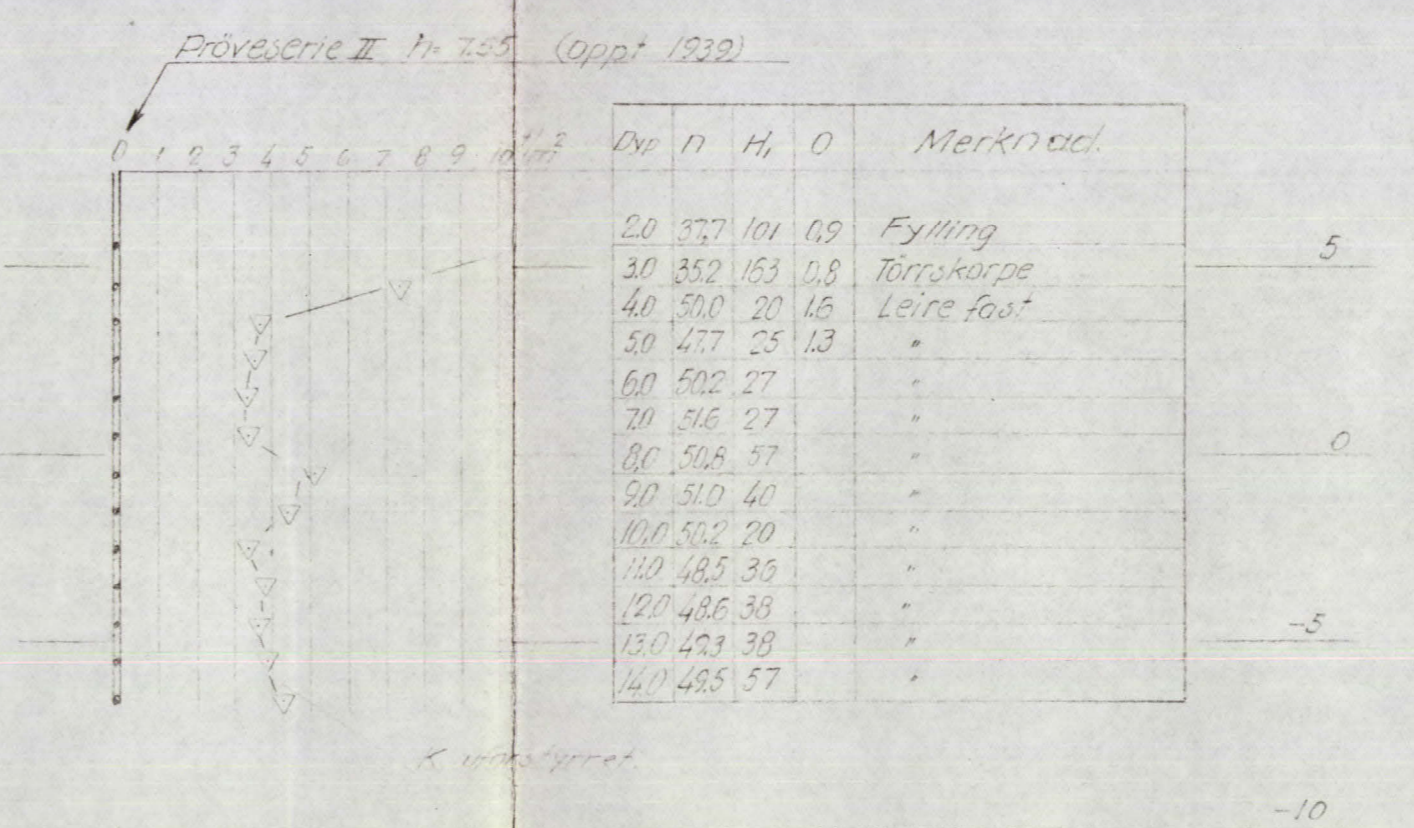 Pröveserie II h= 7.55 (oppt 1939)
0 1 2 3 4 5 6 7 8 9 10 t/m²
Dyp n H₁ O Merknad.
2.0 37,7 101 0,9 Fylling
3.0 35.2 163 0,8 Törrskorpe
4.0 50.0 20 1.6 Leire fast
5.0 47.7 25 1.3 "
6.0 50.2 27 "
7.0 51.6 27 "
8.0 50.8 57 "
9.0 51.0 40 "
10.0 50.2 20 "
11.0 48.5 36 "
12.0 48.6 38 "
13.0 49.3 38 "
14.0 49.5 57 "
5
0
-5
-10
K uforstyrret.